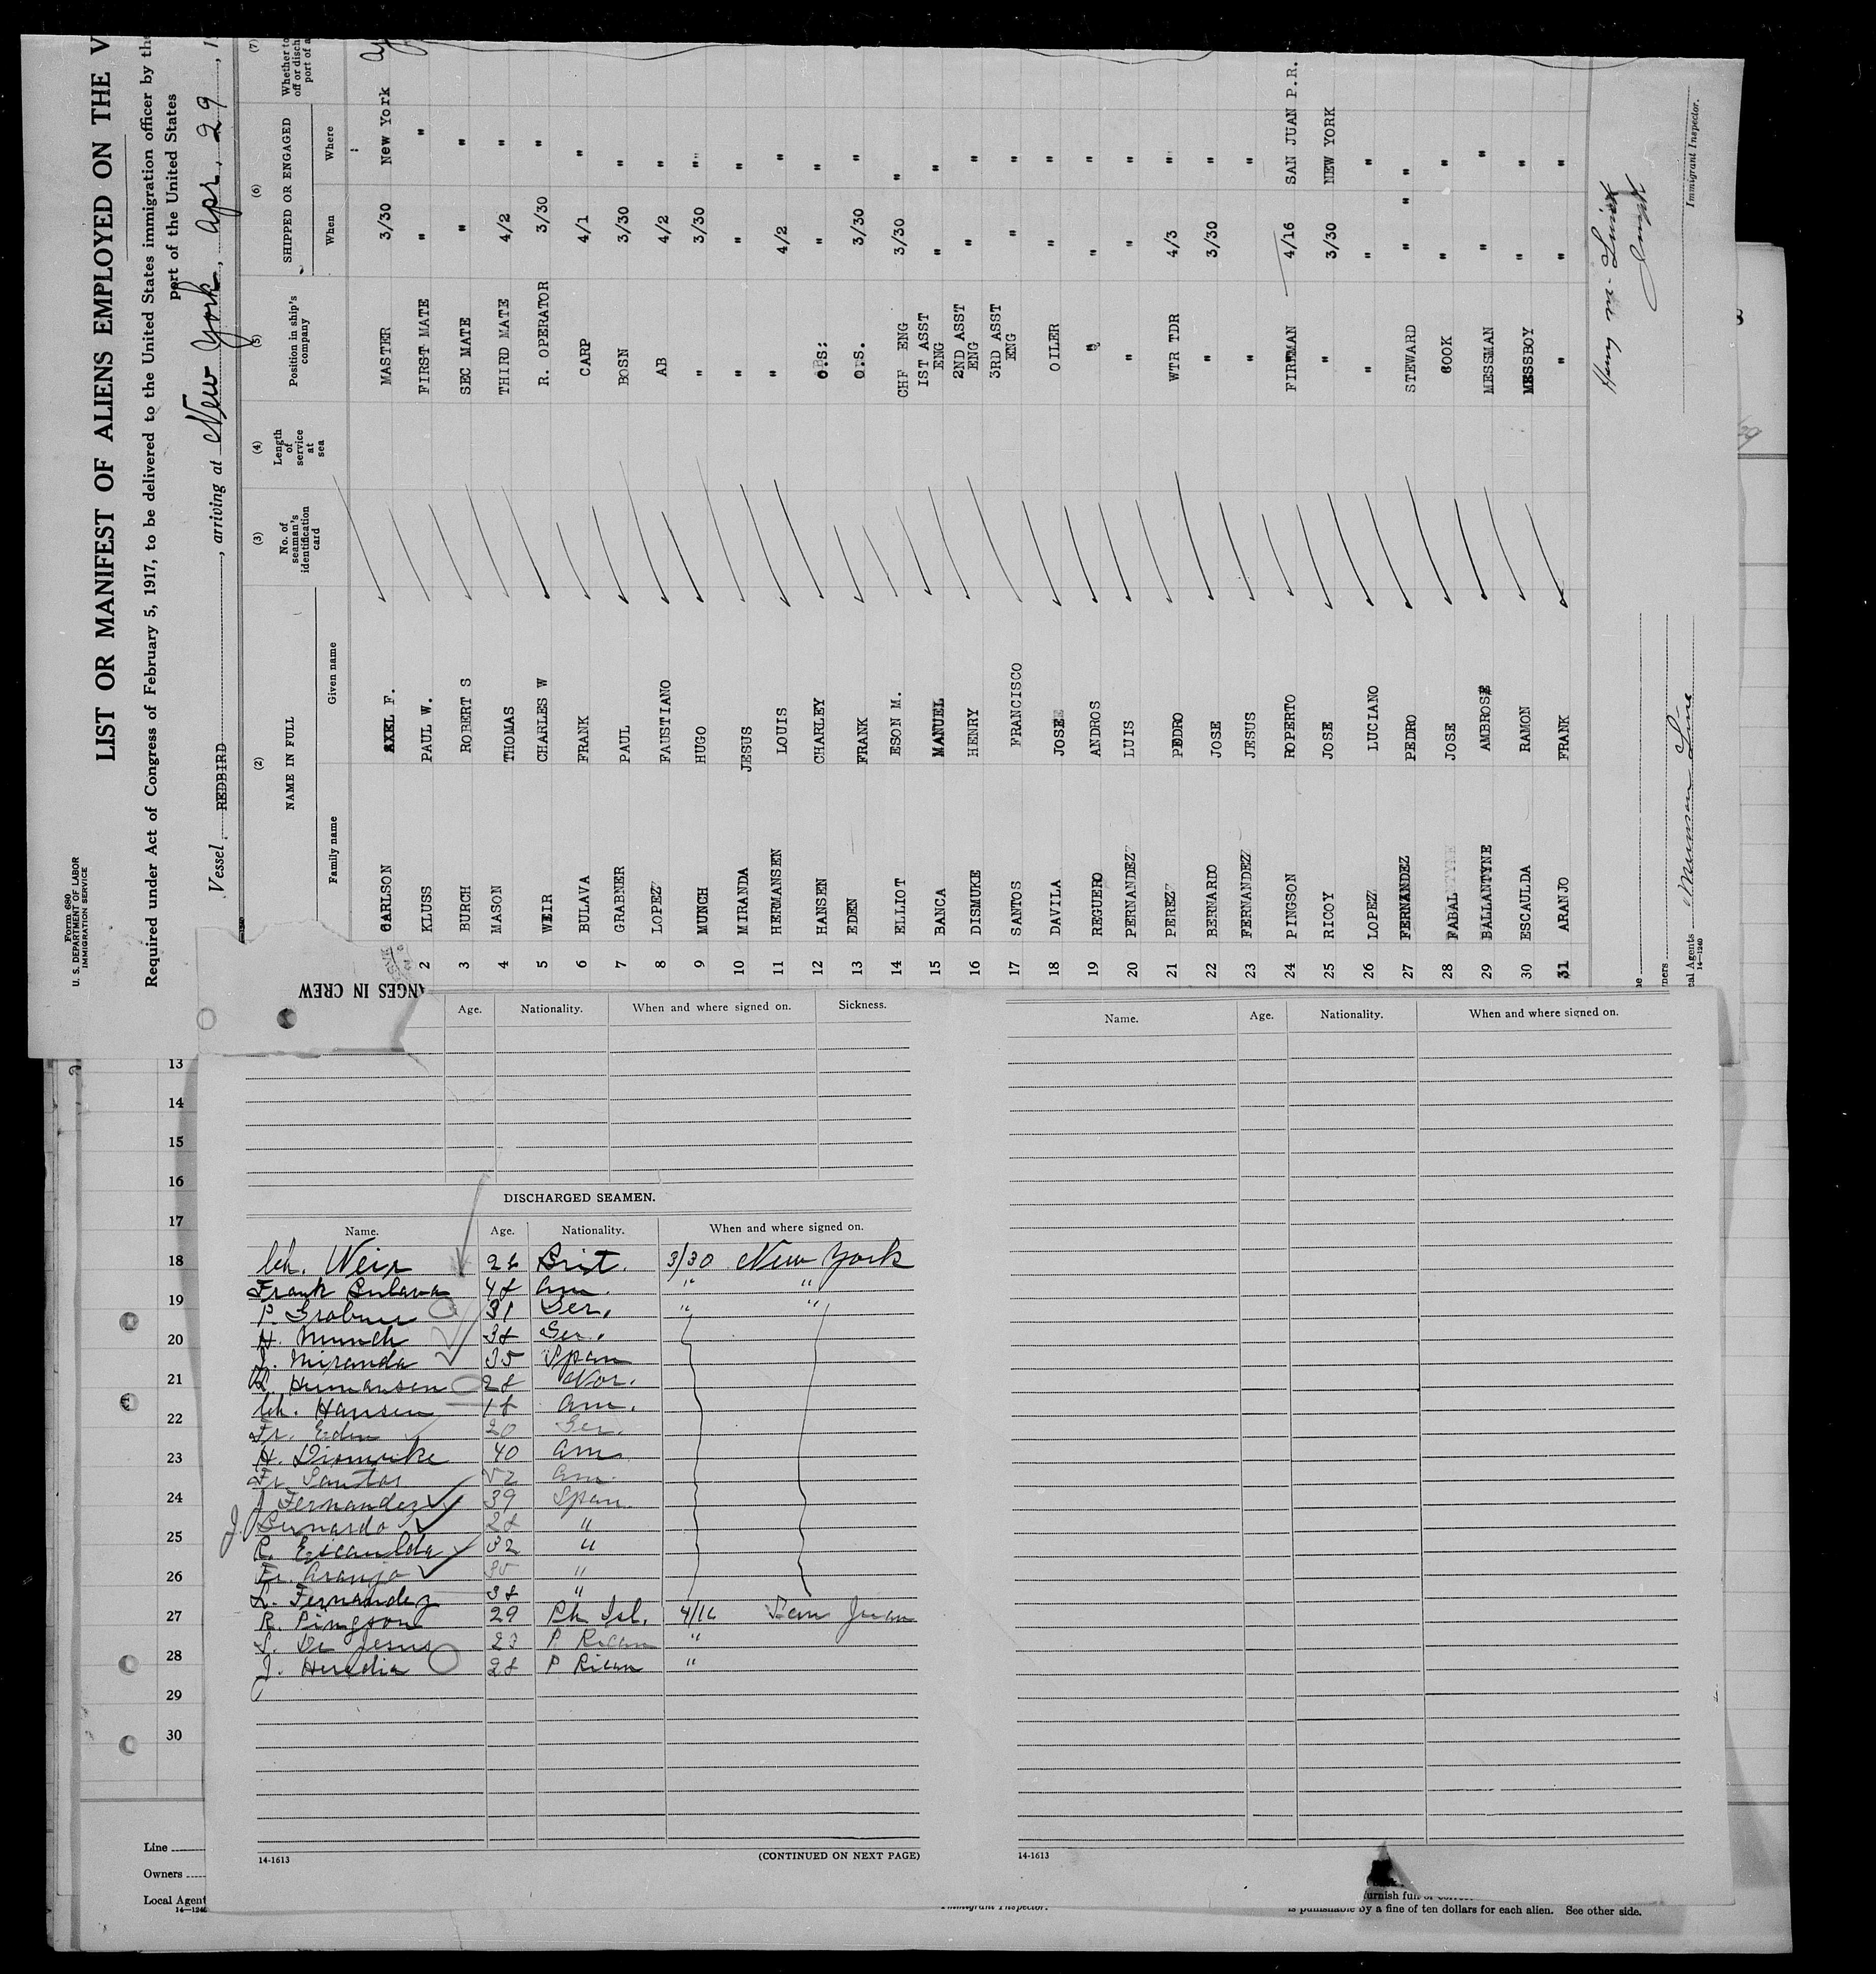 Form 680
U. S. DEPARTMENT OF LABOR
IMMIGRATION SERVICE
LIST OR MANIFEST OF ALIENS EMPLOYED ON THE V
Required under Act of Congress of February 5, 1917, to be delivered to the United States immigration officer by the
port of the United States
Vessel REDBIRD, arriving at New York, Apr. 29, 1
(2) (3) (4) (5) (6) (7)
NAME IN FULL No. of seaman's identification card Length of service at sea Position in ship's company SHIPPED OR ENGAGED
Family name Given name When Where
CARLSON AXEL F. MASTER 3/30 New York
2 KLUSS PAUL W. FIRST MATE " "
3 BURCH ROBERT S SEC MATE " "
4 MASON THOMAS THIRD MATE 4/2 "
5 WEIR CHARLES W R. OPERATOR 3/30 "
6 BULAVA FRANK CARP 4/1 "
7 GRABNER PAUL BOSN 3/30 "
8 LOPEZ FAUSTIANO AB 4/2 "
9 MUNCH HUGO " 3/30 "
10 MIRANDA JESUS " " "
11 HERMANSEN LOUIS " 4/2 "
12 HANSEN CHARLEY O.S. " "
13 EDEN FRANK O.S. 3/30 "
14 ELLIOT ESON M. CHF ENG 3/30 "
15 BANCA MANUEL 1ST ASST ENG " "
16 DISMUKE HENRY 2ND ASST ENG " "
17 SANTOS FRANCISCO 3RD ASST ENG " "
18 DAVILA JOSE OILER " "
19 REGUERO ANDROS " " "
20 PERNANDEZ LUIS " " "
21 PEREZ PEDRO WTR TDR 4/3 "
22 BERNARDO JOSE " 3/30 "
23 FERNANDEZ JESUS " "
24 PINGSON ROPERTO FIREMAN 4/16 SAN JUAN P.R.
25 RICOY JOSE " 3/30 NEW YORK
26 LOPEZ LUCIANO " " "
27 FERNANDEZ PEDRO STEWARD " " "
28 FABAL JOSE COOK " "
29 BALLANTYNE AMBROSE MESSMAN " "
30 ESCAULDA RAMON MESSBOY " "
31 ARANJO FRANK " " "
Immigrant Inspector.
Munson Line
ANGES IN CREW
Age. Nationality. When and where signed on. Sickness.
Name. Age. Nationality. When and where signed on.
13
14
15
16
17
18
19
20
21
22
23
24
25
26
27
28
29
30
DISCHARGED SEAMEN.
Name. Age. Nationality. When and where signed on.
Ch. Weir 26 Brit. 3/30 New York
Frank Bulava 48 Am. " "
P. Grabner 31 Ger. " "
H. Munch 38 Ger.
J. Miranda 35 Span
L. Hermansen 28 Nor.
Ch. Hansen 18 Am.
Fr. Eden 20 Ger.
H. Dismuke 40 Am
Fr. Santos 52 Am.
J Fernandez 39 Span.
J. Bernardo 28 "
R. Escaulda 32 "
Fr. Aranjo 35 "
L. Fernandez 38 "
R. Pingson 29 Ph Isl. 4/16 San Juan
De Jesus 23 P Rican "
J. Heredia 28 P Rican "
14-1613 (CONTINUED ON NEXT PAGE)
14-1613
Line
Owners
Local Agent
14—1240
Immigrant Inspector.
is punishable by a fine of ten dollars for each alien. See other side.